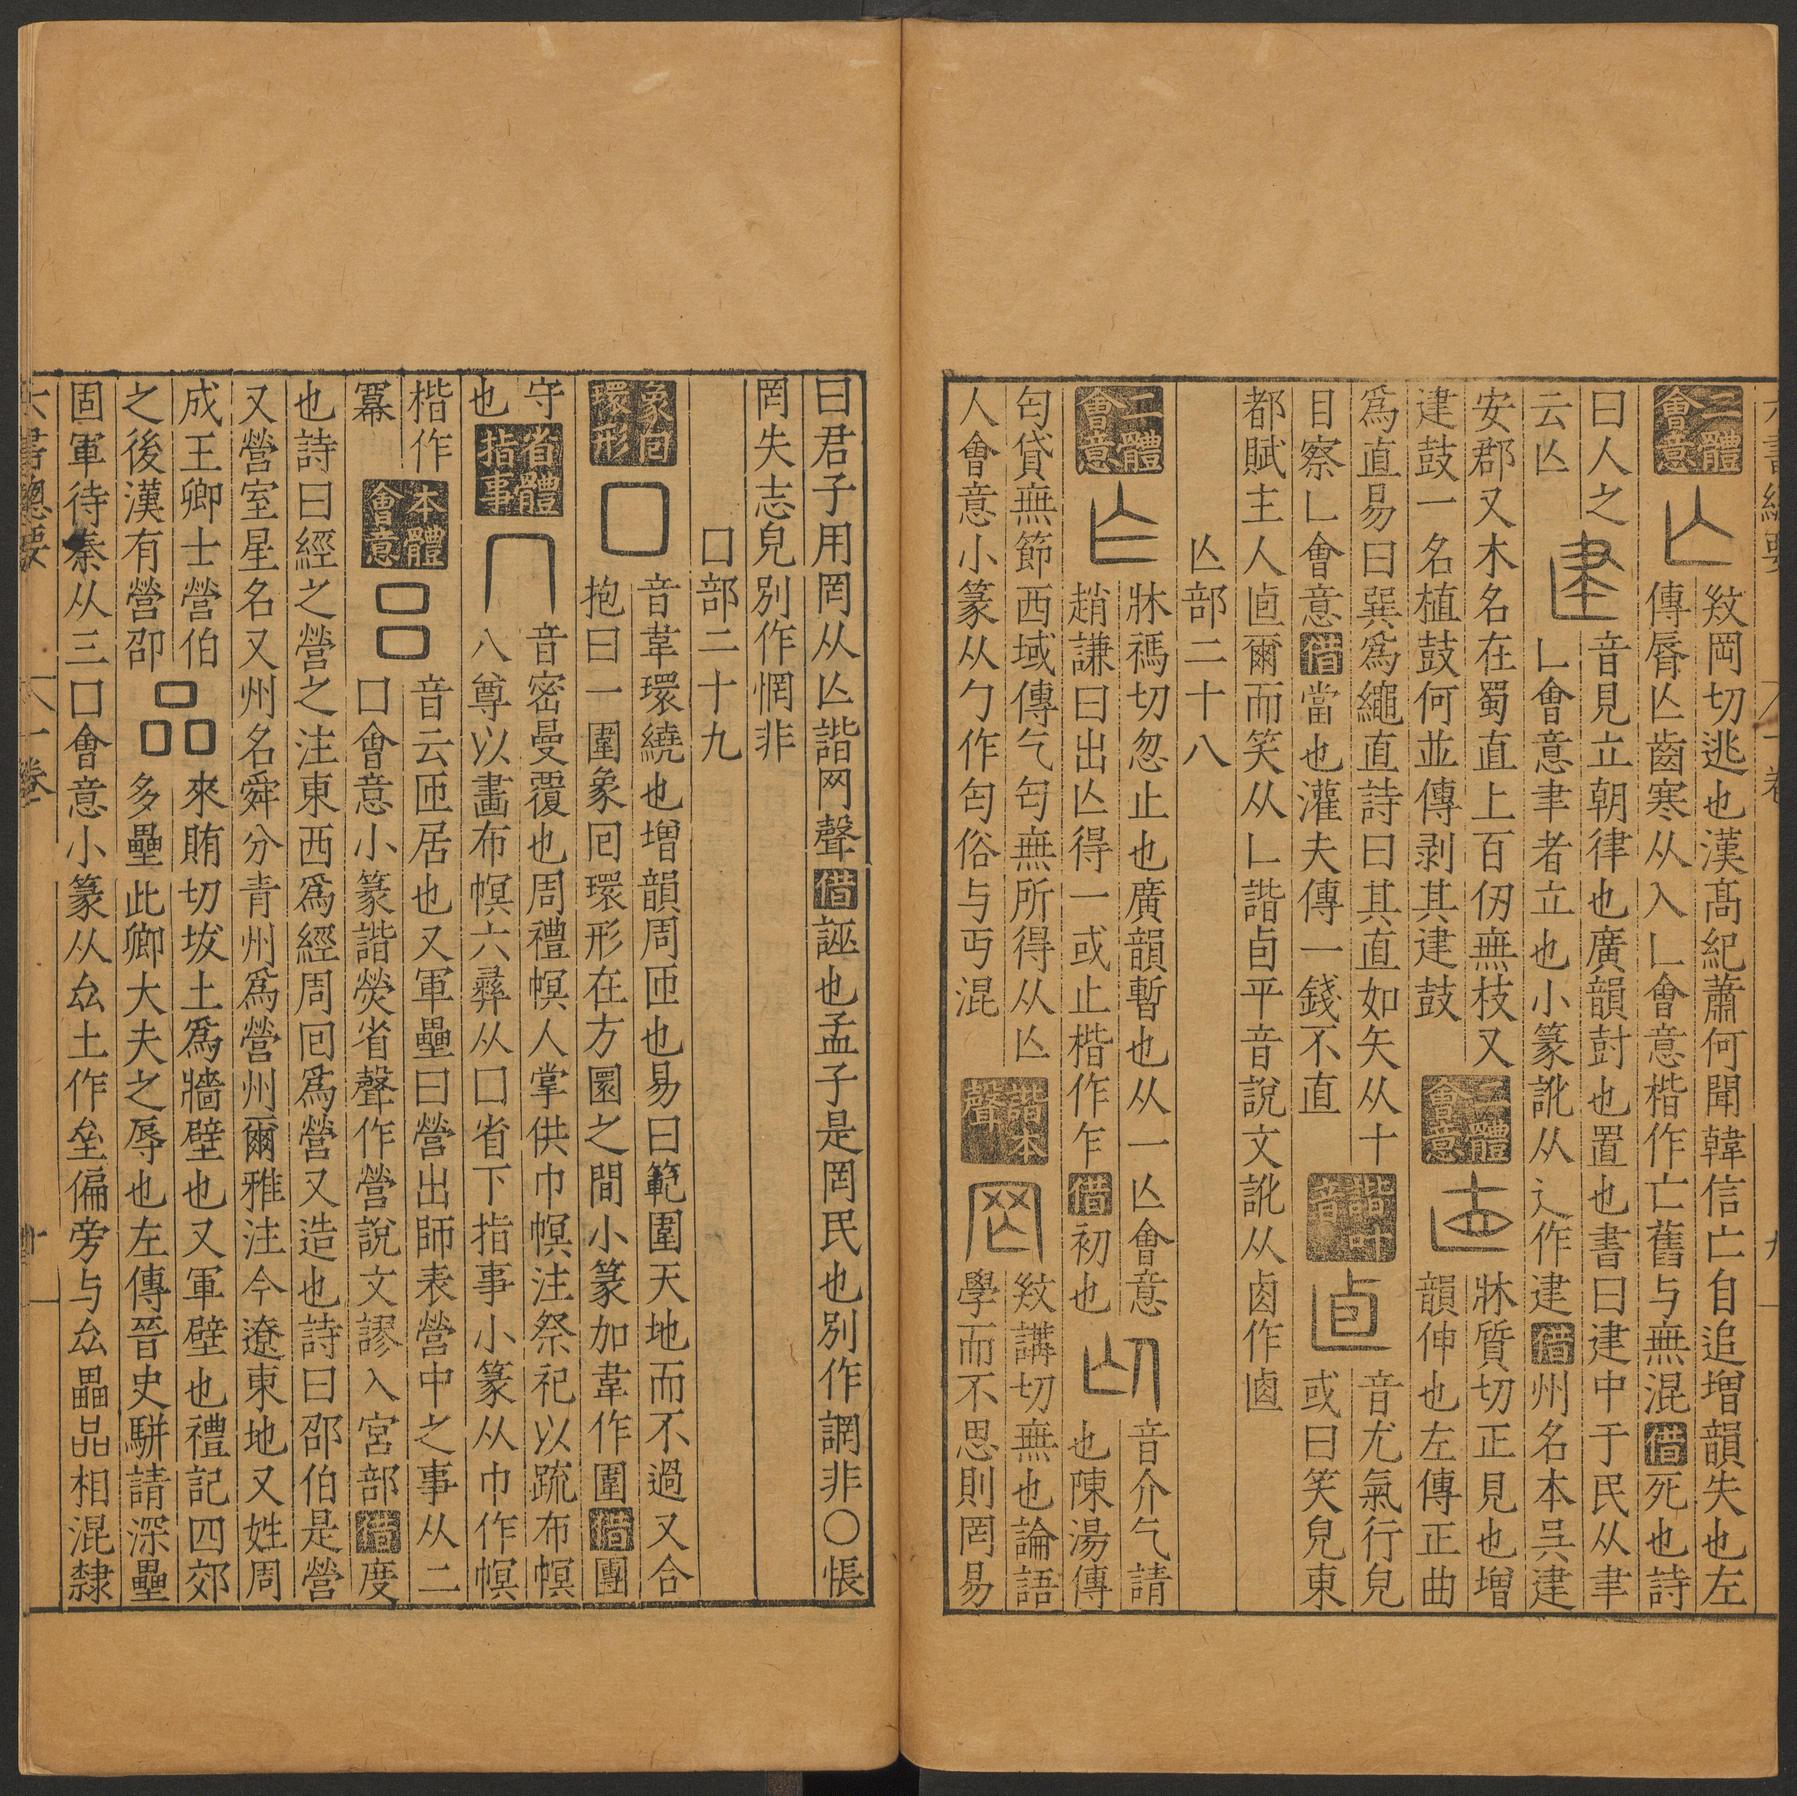 六書總要 一卷 九
二體會意 亾 紋岡切逃也漢髙紀蕭何聞韓信亡自追增韻失也左
傳脣亾齒寒从入𠃊會意楷作亡舊与無混借死也詩
曰人之 音見立朝律也廣韻封也置也書曰建中于民从聿
云亾 𠃊會意聿者立也小篆訛从廴作建借州名本呉建
安郡又木名在蜀直上百仞無枝又 三體會意 牀質切正見也增
建鼓一名植鼓何並傳剥其建鼓 韻伸也左傳正曲
爲直易曰巽爲繩直詩曰其直如矢从十 諧叶音 音尤氣行皃
目察𠃊會意借當也灌夫傳一錢不直 或曰笑皃東
都賦主人逌爾而笑从𠃊諧卣平音說文訛从卤作逌
亾部二十八
二體會意 牀禡切忽止也廣韻暫也从一亾會意 音介气請
趙謙曰出亾得一或止楷作乍借初也 也陳湯傳
匄貸無節西域傳气匄無所得从亾 諧本聲 紋講切無也論語
人會意小篆从勹作匄俗与丏混 學而不思則罔易
曰君子用罔从亾諧网聲借誣也孟子是罔民也別作誷非〇悵
罔失志皃別作惘非
囗部二十九
象囘環形 囗 音韋環繞也增韻周匝也易曰範圍天地而不過又合
抱曰一圍象囘環形在方圓之間小篆加韋作圍借團
守 省體指事 冂 音密曼覆也周禮幎人掌供巾幎注祭祀以疏布幎
也 八尊以畫布幎六彝从囗省下指事小篆从巾作幎
楷作 本體會意 音云匝居也又軍壘曰營出師表營中之事从二
冪 囗會意小篆諧熒省聲作營說文謬入宮部借度
也詩曰經之營之注東西爲經周囘爲營又造也詩曰邵伯是營
又營室星名又州名舜分青州爲營州爾雅注今遼東地又姓周
成王卿士營伯 來賄切坺土爲牆壁也又軍壁也禮記四郊
之後漢有營卲 多壘此卿大夫之辱也左傳晉史駢請深壘
固軍待秦从三囗會意小篆从厽土作垒偏旁与厽畾品相混隸
六書總要 一卷 十